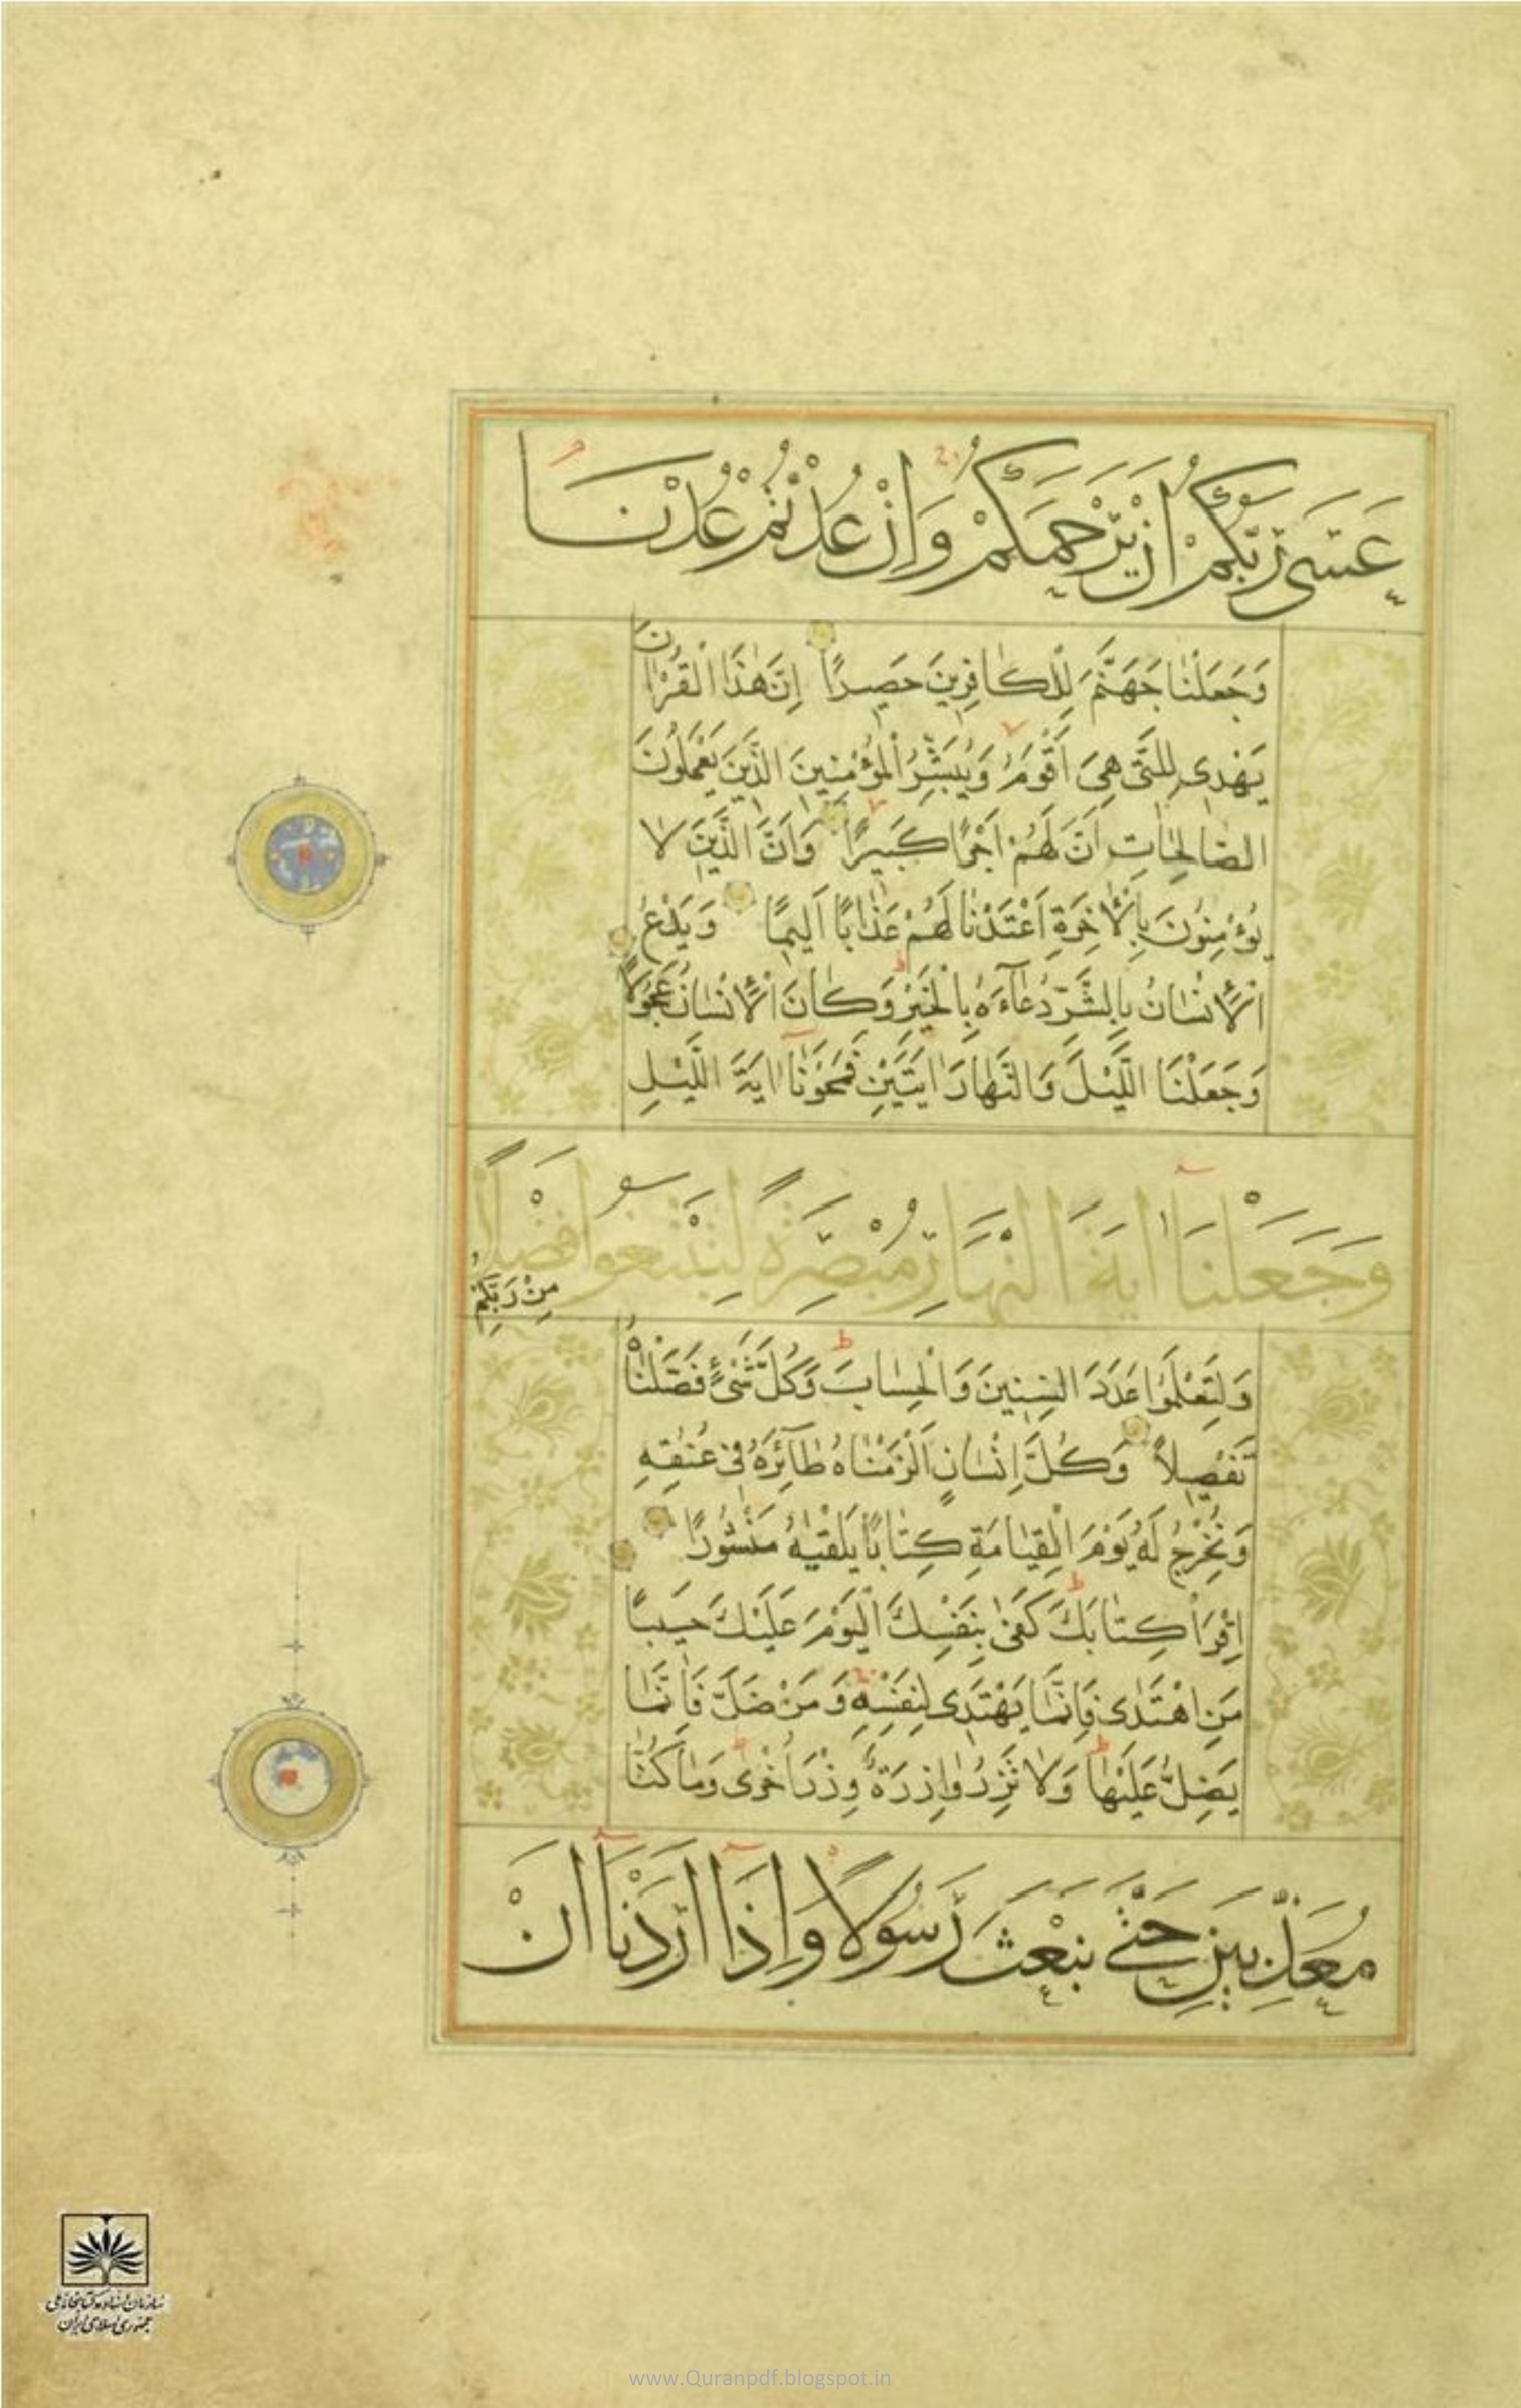 عَسَى رَبُّكُمْ اَنْ يَرْحَمَكُمْ وَاِنْ عُدْتُمْ عُدْنَا
وَجَعَلْنَا جَهَنَّمَ لِلْكَافِرِينَ حَصِيرًا اِنَّ هٰذَا الْقُرْاٰنَ
يَهْدِى لِلَّتِى هِىَ اَقْوَمُ وَيُبَشِّرُ الْمُؤْمِنِينَ الَّذِينَ يَعْمَلُونَ
الصَّالِحَاتِ اَنَّ لَهُمْ اَجْرًا كَبِيرًا وَاَنَّ الَّذِينَ لَا
يُؤْمِنُونَ بِالْاٰخِرَةِ اَعْتَدْنَا لَهُمْ عَذَابًا اَلِيمًا وَيَدْعُ
الْاِنْسَانُ بِالشَّرِّ دُعَآءَهُ بِالْخَيْرِ وَكَانَ الْاِنْسَانُ عَجُولًا
وَجَعَلْنَا اللَّيْلَ وَالنَّهَارَ اٰيَتَيْنِ فَمَحَوْنَآ اٰيَةَ اللَّيْلِ
وَجَعَلْنَآ اٰيَةَ النَّهَارِ مُبْصِرَةً لِتَبْتَغُوا فَضْلًا
مِنْ رَبِّكُمْ
وَلِتَعْلَمُوا عَدَدَ السِّنِينَ وَالْحِسَابَ وَكُلَّ شَىْءٍ فَصَّلْنَاهُ
تَفْصِيلًا وَكُلَّ اِنْسَانٍ اَلْزَمْنَاهُ طَآئِرَهُ فِى عُنُقِهِ
وَنُخْرِجُ لَهُ يَوْمَ الْقِيَامَةِ كِتَابًا يَلْقٰيهُ مَنْشُورًا
اِقْرَاْ كِتَابَكَ كَفٰى بِنَفْسِكَ الْيَوْمَ عَلَيْكَ حَسِيبًا
مَنِ اهْتَدٰى فَاِنَّمَا يَهْتَدِى لِنَفْسِهِ وَمَنْ ضَلَّ فَاِنَّمَا
يَضِلُّ عَلَيْهَا وَلَا تَزِرُ وَازِرَةٌ وِزْرَ اُخْرٰى وَمَا كُنَّا
مُعَذِّبِينَ حَتّٰى نَبْعَثَ رَسُولًا وَاِذَآ اَرَدْنَآ اَنْ
سازمان اسناد و کتابخانه ملی
جمهوری اسلامی ایران
www.Quranpdf.blogspot.in